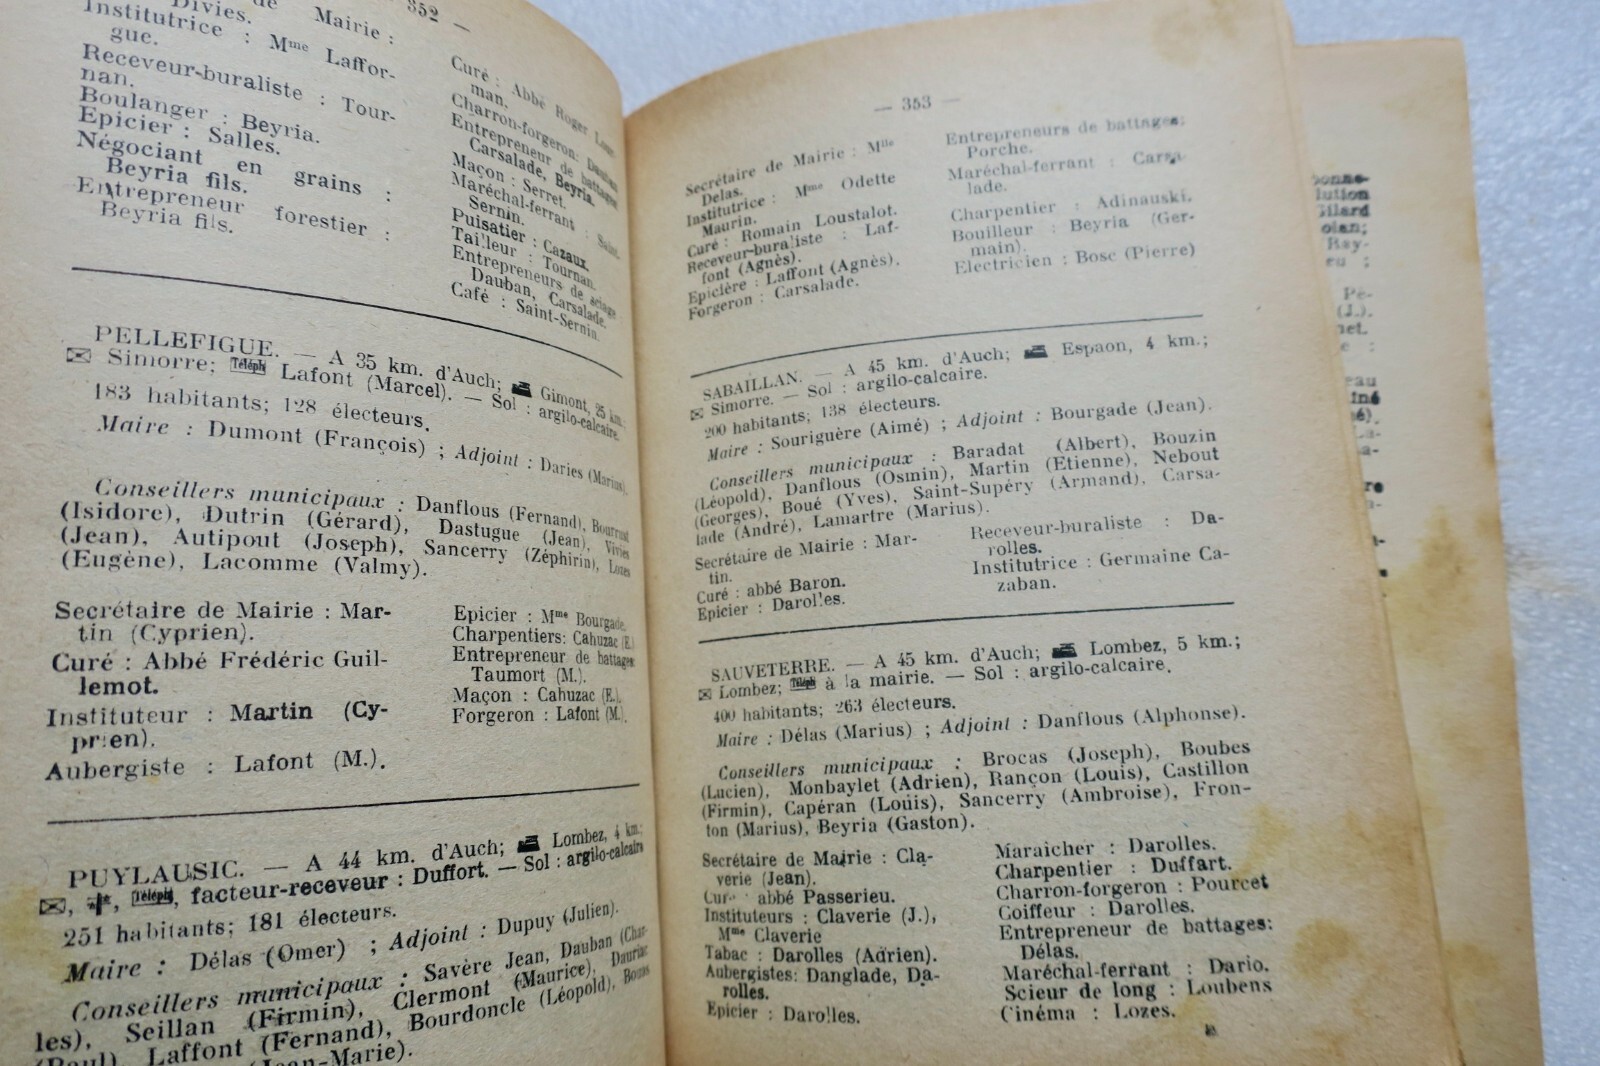 352 —
Divies.
de Mairie :
Institutrice : Mme Laffor-
gue.
Receveur-buraliste : Tour-
nan.
Boulanger : Beyria.
Epicier : Salles.
Négociant en grains :
Beyria fils.
Entrepreneur forestier :
Beyria fils.
Curé : Abbé Roger
man.
Charron-forgeron: Dauban
Entrepreneur de battages
Carsalade, Beyria.
Maçon : Serret.
Maréchal-ferrant : Saint-
Sernin.
Puisatier : Cazaux.
Tailleur : Tournan.
Entrepreneurs de sciage
Dauban, Carsalade.
Café : Saint-Sernin.
PELLEFIGUE. — A 35 km. d'Auch; Gimont, 25 km.;
Simorre; Téléph Lafont (Marcel). — Sol : argilo-calcaire.
183 habitants; 128 électeurs.
Maire : Dumont (François) ; Adjoint : Daries (Marius).
Conseillers municipaux : Danflous (Fernand), Bourrust
(Isidore), Dutrin (Gérard), Dastugue (Jean), Vivies
(Jean), Autipout (Joseph), Sancerry (Zéphirin), Lozes
(Eugène), Lacomme (Valmy).
Secrétaire de Mairie : Mar-
tin (Cyprien).
Curé : Abbé Frédéric Guil-
lemot.
Instituteur : Martin (Cy-
prien).
Aubergiste : Lafont (M.).
Epicier : Mme Bourgade.
Charpentiers: Cahuzac (E.)
Entrepreneur de battages
Taumort (M.).
Maçon : Cahuzac (E.).
Forgeron : Lafont (M.).
PUYLAUSIC. — A 44 km. d'Auch; Lombez, 4 km.;
Téléph, facteur-receveur : Duffort. — Sol : argilo-calcaire
251 habitants; 181 électeurs.
Maire : Délas (Omer) ; Adjoint : Dupuy (Julien).
Conseillers municipaux : Savère Jean, Dauban (Char-
les), Seillan (Firmin), Clermont (Maurice), Dauriac
(Paul), Laffont (Fernand), Bourdoncle (Léopold), Bouas
(Jean-Marie).
— 353 —
Secrétaire de Mairie : Mlle
Delas.
Institutrice : Mme Odette
Maurin.
Curé : Romain Loustalot.
Receveur-buraliste : Laf-
font (Agnès).
Epicière : Laffont (Agnès).
Forgeron : Carsalade.
Entrepreneurs de battages:
Porche.
Maréchal-ferrant : Carsa-
lade.
Charpentier : Adinauski.
Bouilleur : Beyria (Ger-
main).
Electricien : Bosc (Pierre)
SABAILLAN. — A 45 km. d'Auch; Espaon, 4 km.;
Simorre. — Sol : argilo-calcaire.
200 habitants; 138 électeurs.
Maire : Souriguère (Aimé) ; Adjoint : Bourgade (Jean).
Conseillers municipaux : Baradat (Albert), Bouzin
(Léopold), Danflous (Osmin), Martin (Etienne), Nebout
(Georges), Boué (Yves), Saint-Supéry (Armand), Carsa-
lade (André), Lamartre (Marius).
Secrétaire de Mairie : Mar-
tin.
Curé : abbé Baron.
Epicier : Darolles.
Receveur-buraliste : Da-
rolles.
Institutrice : Germaine Ca-
zaban.
SAUVETERRE. — A 45 km. d'Auch; Lombez, 5 km.;
Lombez; Téléph à la mairie. — Sol : argilo-calcaire.
400 habitants; 263 électeurs.
Maire : Délas (Marius) ; Adjoint : Danflous (Alphonse).
Conseillers municipaux : Brocas (Joseph), Boubes
(Lucien), Monbaylet (Adrien), Rançon (Louis), Castillon
(Firmin), Capéran (Louis), Sancerry (Ambroise), Fron-
ton (Marius), Beyria (Gaston).
Secrétaire de Mairie : Cla-
verie (Jean).
Cur abbé Passerieu.
Instituteurs : Claverie (J.),
Mme Claverie
Tabac : Darolles (Adrien).
Aubergistes: Danglade, Da-
rolles.
Epicier : Darolles.
Maraicher : Darolles.
Charpentier : Duffart.
Charron-forgeron : Pourcet
Coiffeur : Darolles.
Entrepreneur de battages:
Délas.
Maréchal-ferrant : Dario.
Scieur de long : Loubens
Cinéma : Lozes.
onne-
lution
ilard
olan;
Bay-
eu ;
Pé-
(J.).
net.